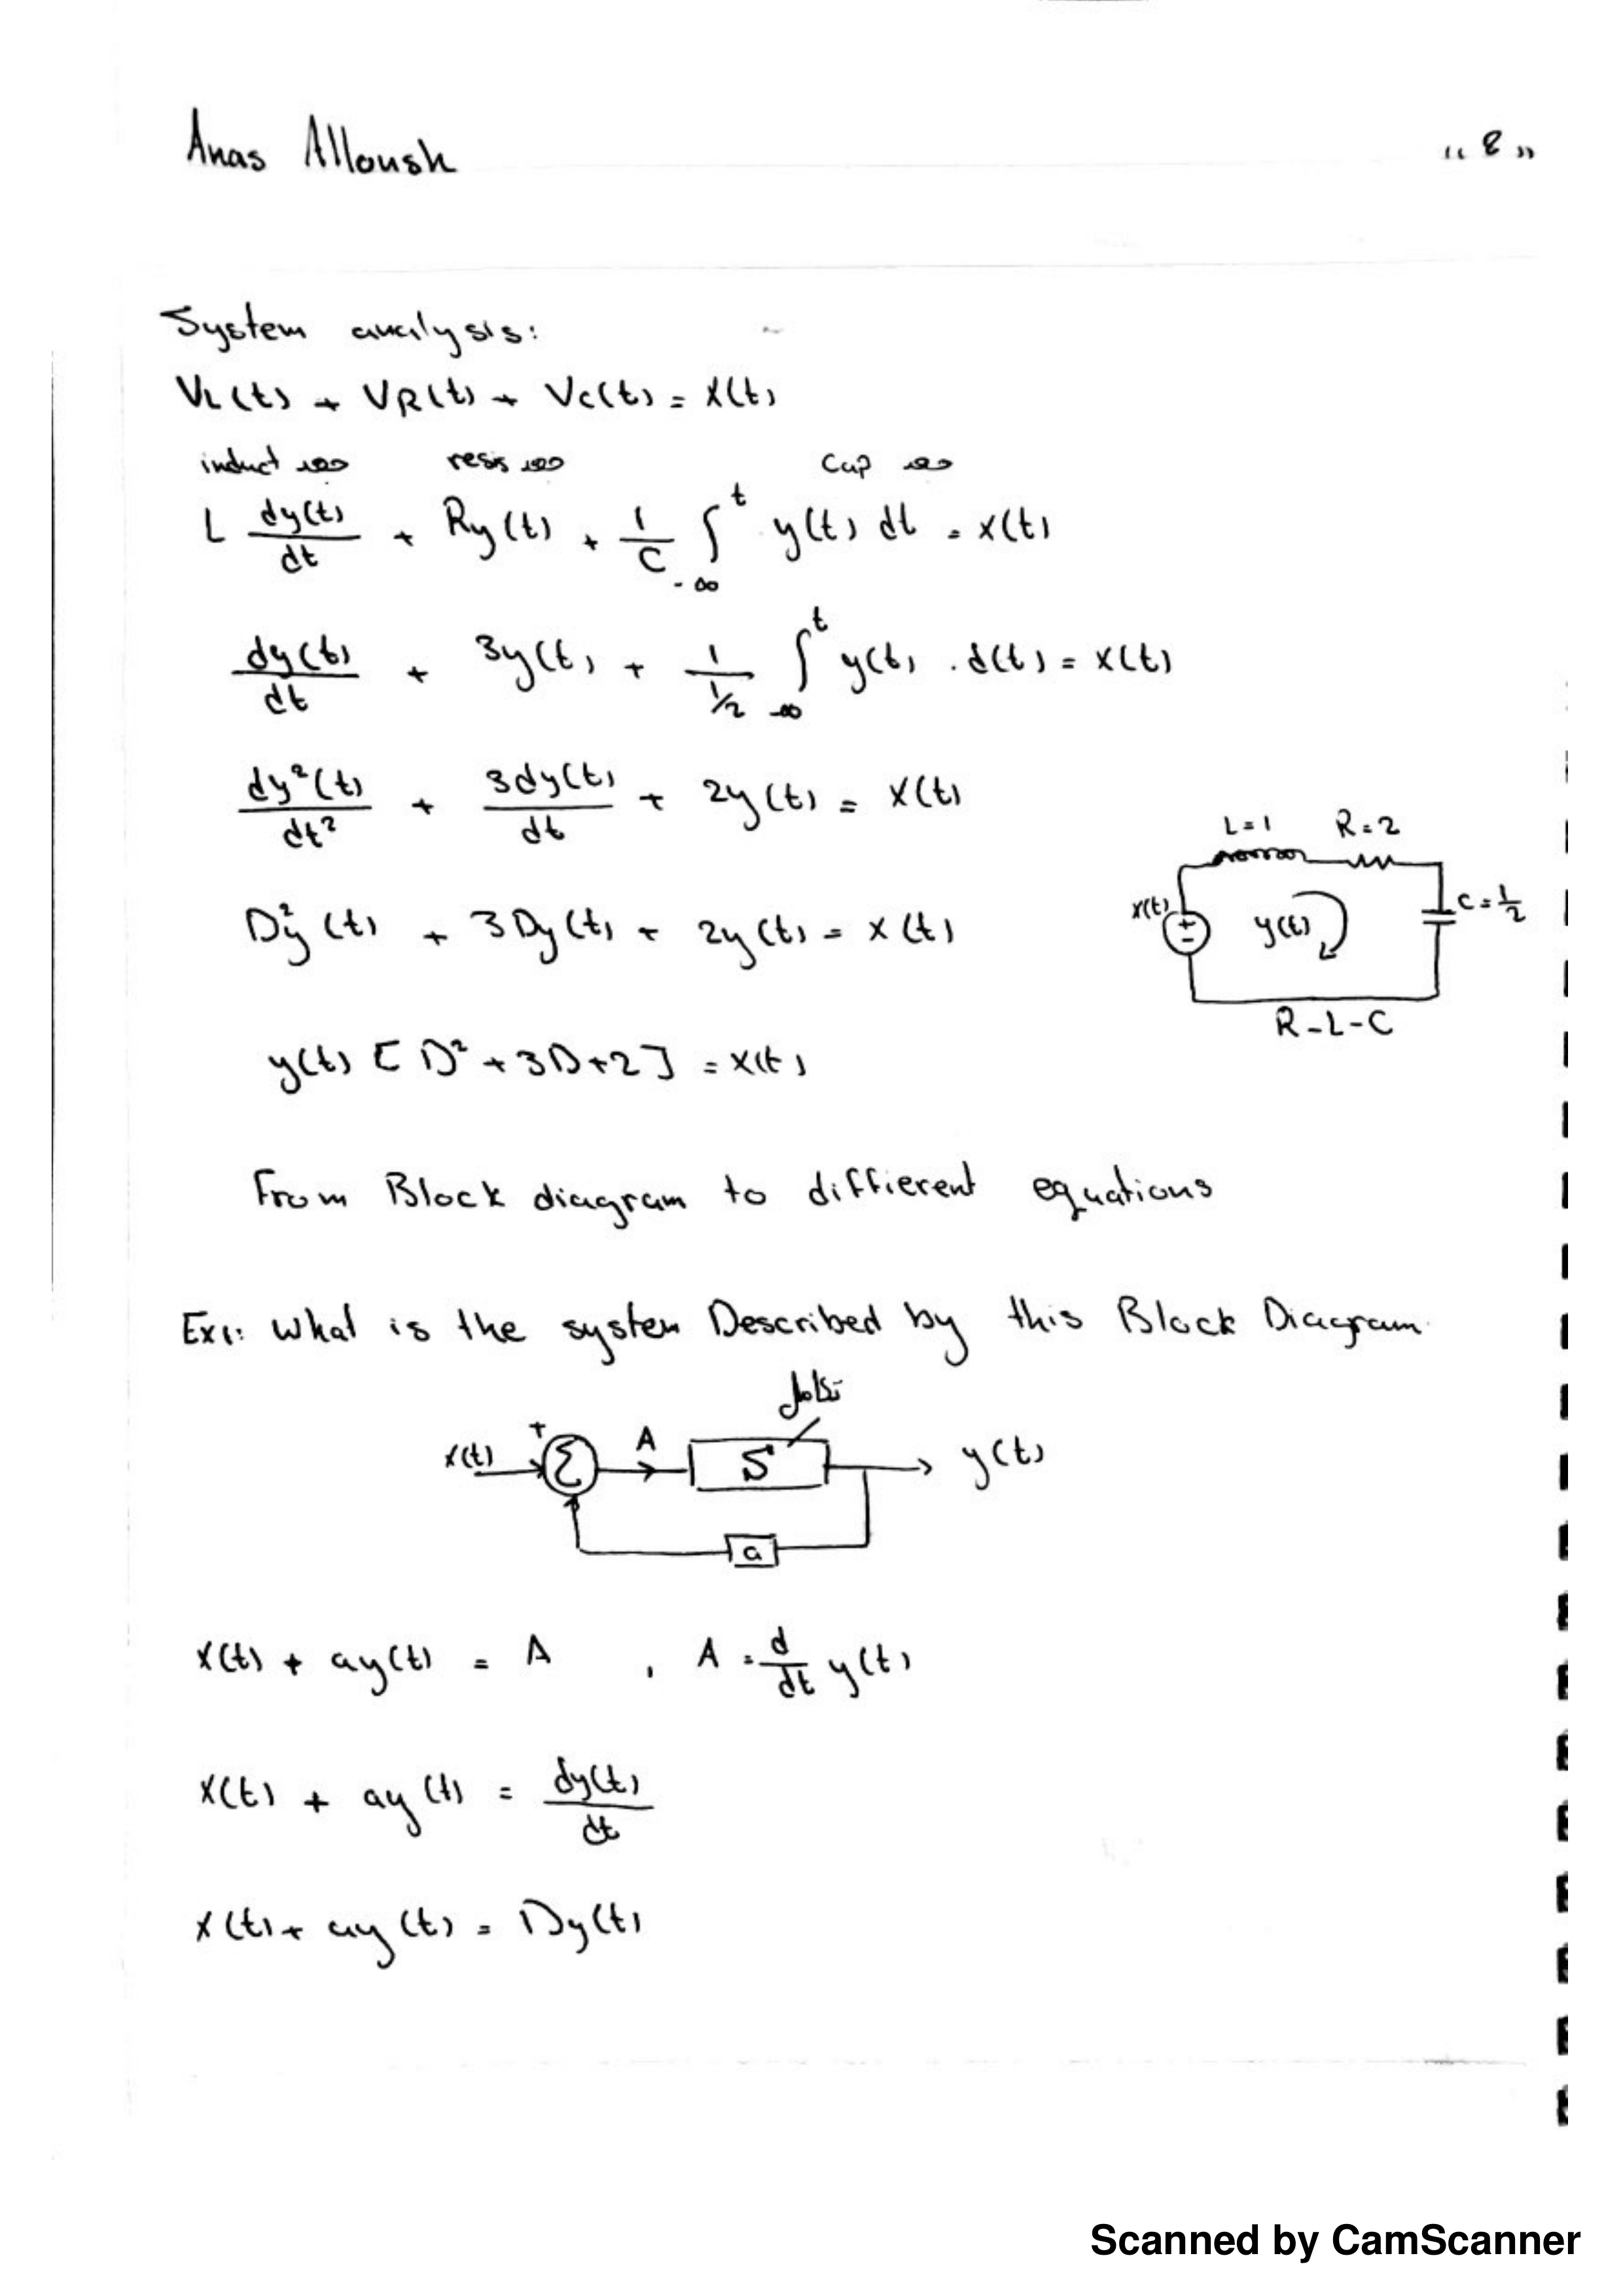 Anas Alloush
"8"
System analysis:
VL(t) + VR(t) + Vc(t) = x(t)
induct جهد resis جهد Cap جهد
L dy(t)/dt + Ry(t) + 1/C ∫_{-∞}^{t} y(t) dt = x(t)
dy(t)/dt + 3y(t) + 1/(1/2) ∫_{-∞}^{t} y(t) . d(t) = x(t)
dy²(t)/dt² + 3dy(t)/dt + 2y(t) = x(t)
L=1 R=2
C=1/2
x(t)
+
-
y(t)
R-L-C
D²y(t) + 3Dy(t) + 2y(t) = x(t)
y(t) [D²+3D+2] = x(t)
From Block diagram to diffierent equations
Ex1: What is the system Described by this Block Diagram.
تكامل
x(t) + Σ A ∫ y(t)
a
x(t) + ay(t) = A , A = d/dt y(t)
x(t) + ay(t) = dy(t)/dt
x(t) + ay(t) = Dy(t)
Scanned by CamScanner